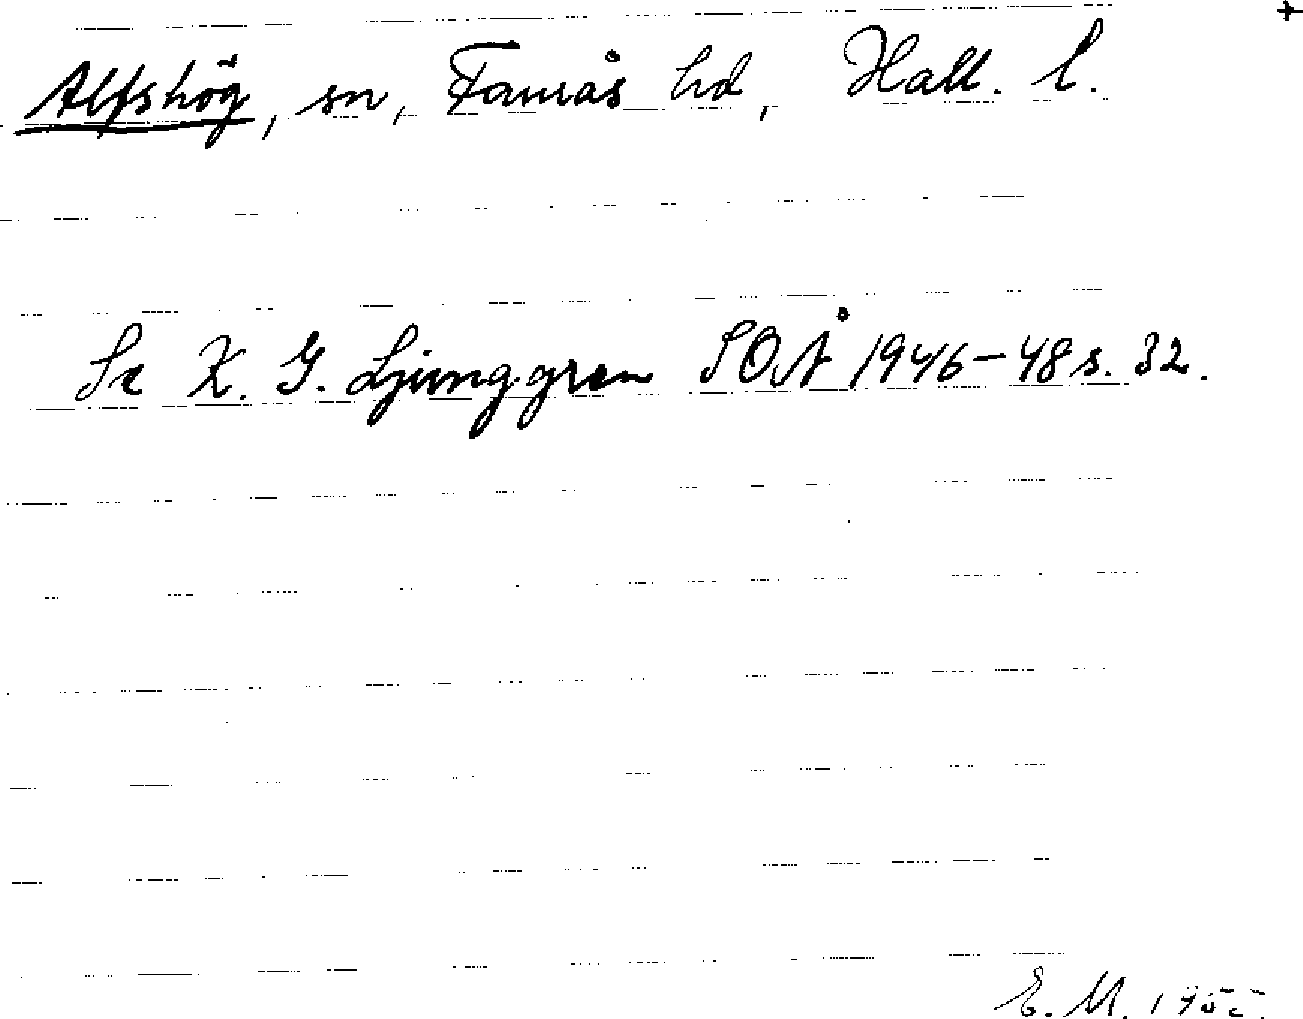 +
Alfshög, sn, Faurås hd, Hall. l.
Se K. G. Ljunggren SOÅ 1946-48 s. 32.
E. M.